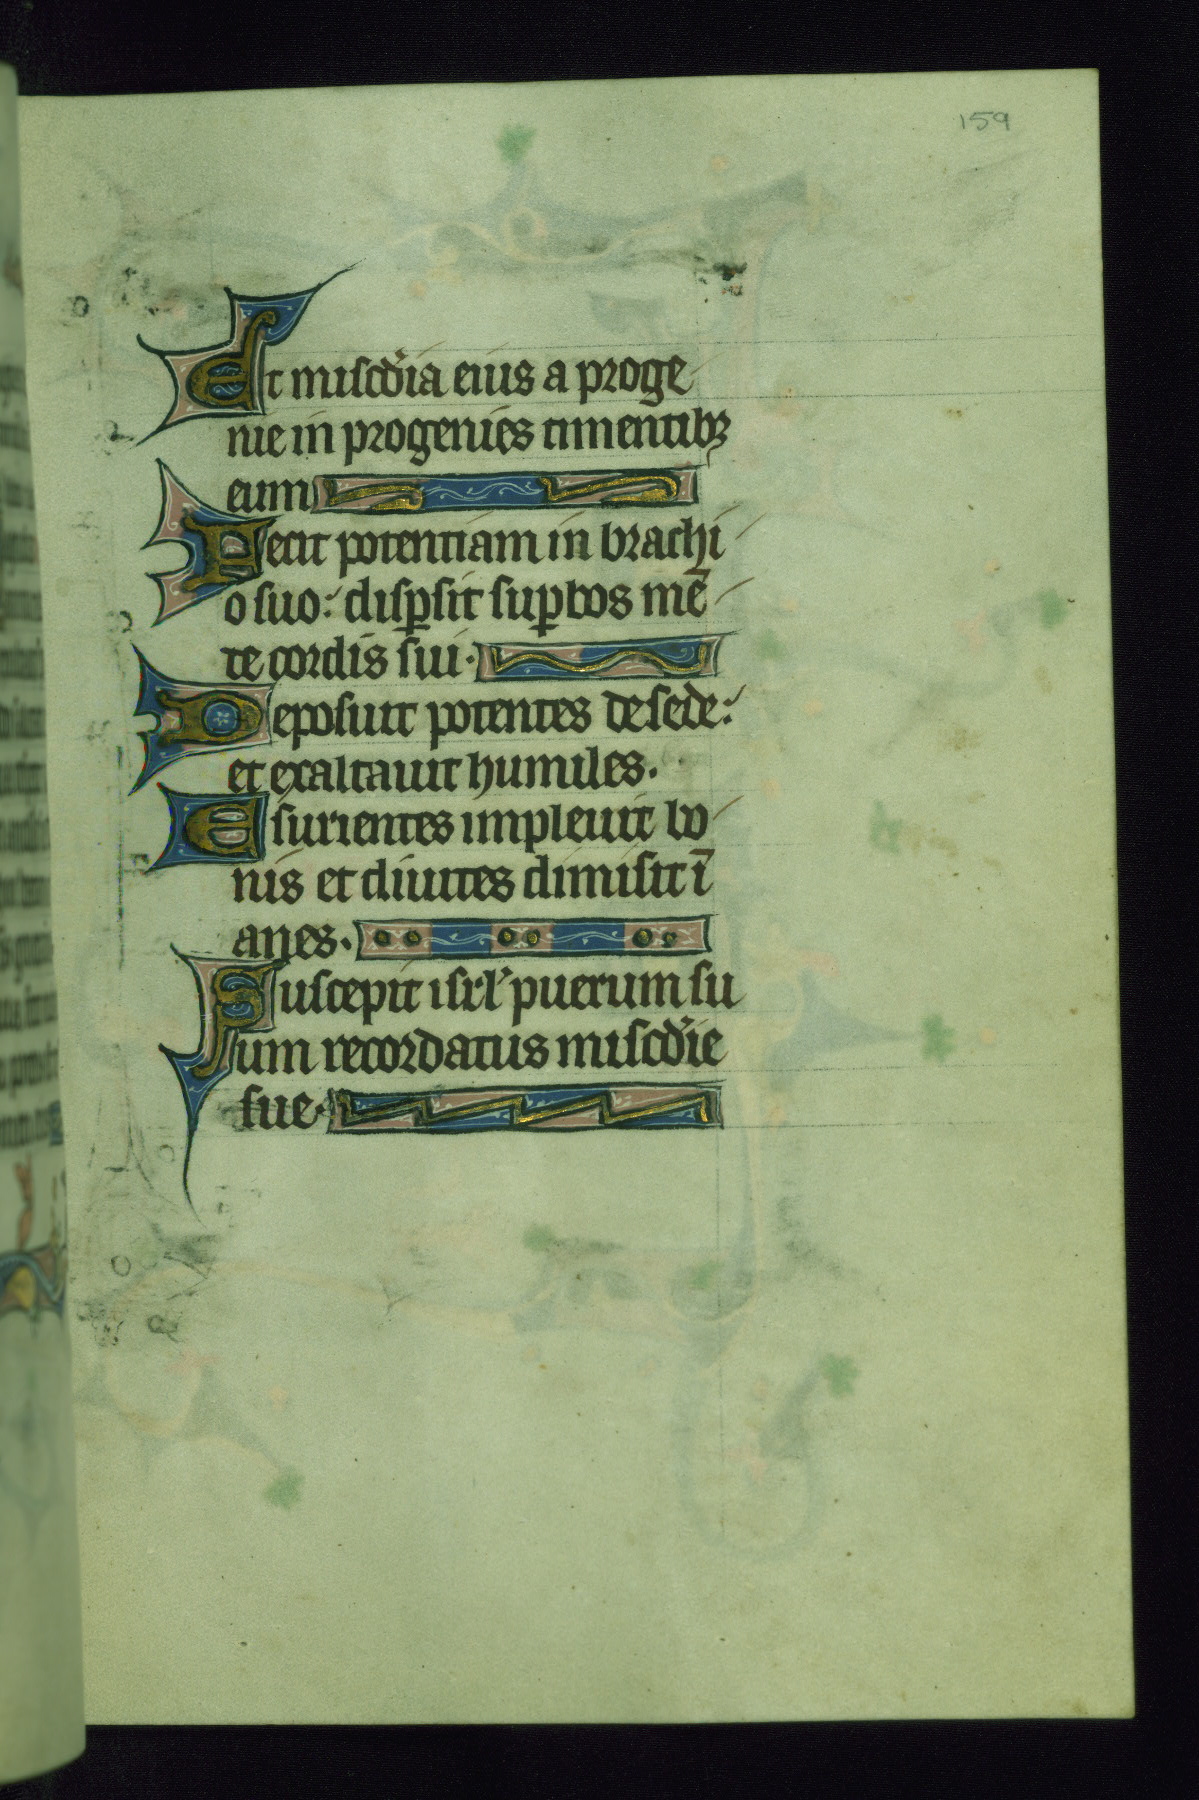 159
Et misc̄dia eius a proge
nie in progenies timentibꝫ
eum
Fecit potentiam in brachi
o suo: disꝑsit suꝑbos mē
te cordis sui.
Deposuit potentes de sede:
et exaltauit humiles.
Esurientes impleuit bo
nis et diuites dimisit ī
anes.
Suscepit isrl̕ puerum su
um recordatus misc̄die
sue.